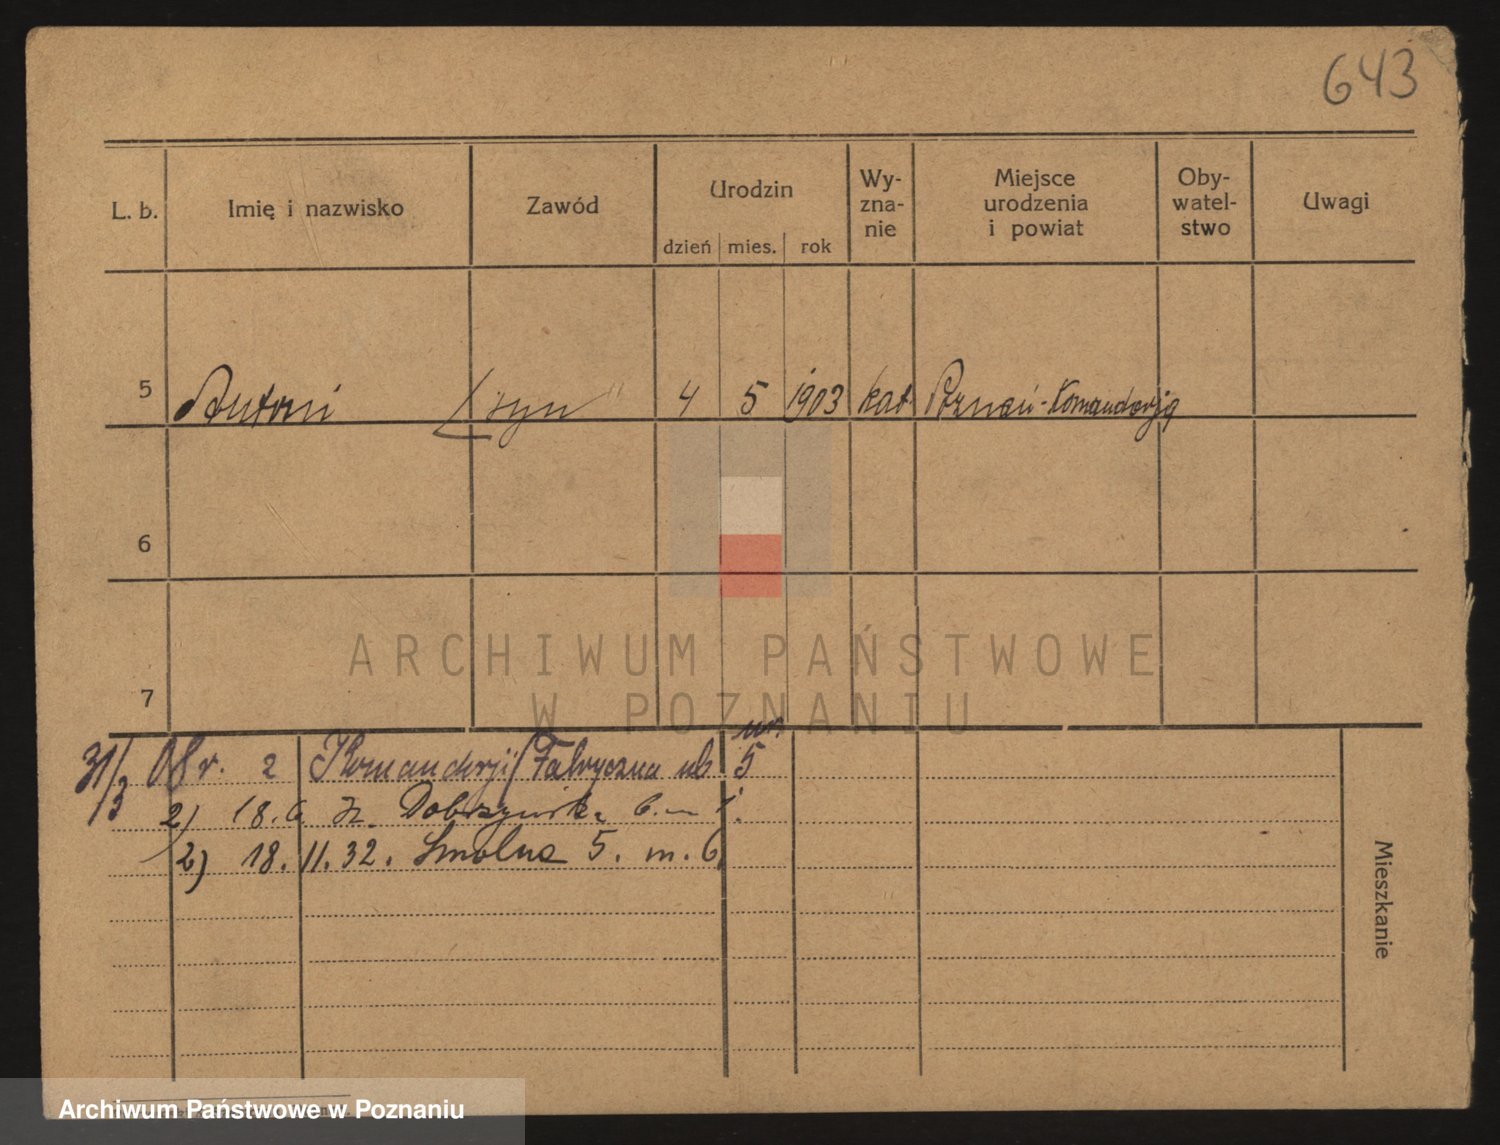 643
L. b. Imię i nazwisko Zawód Urodzin Wy- Miejsce Oby- Uwagi
zna- urodzenia watel-
nie i powiat stwo
dzień mies. rok
5 Antoni syn 4 5 1903 kat Poznań-Komandorja
6
7
ARCHIWUM PAŃSTWOWE
W POZNANIU
31/3 2 Komandorji/Fabryczna 5
2) 18.6 Dobrzyńska 6. m 1.
2) 18. 11. 32. Smolna 5. m. 6
Mieszkanie
Archiwum Państwowe w Poznaniu